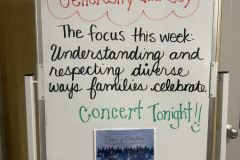 Generosity and Joy
The focus this week:
Understanding and
respecting diverse
ways families celebrate.
Concert Tonight!!